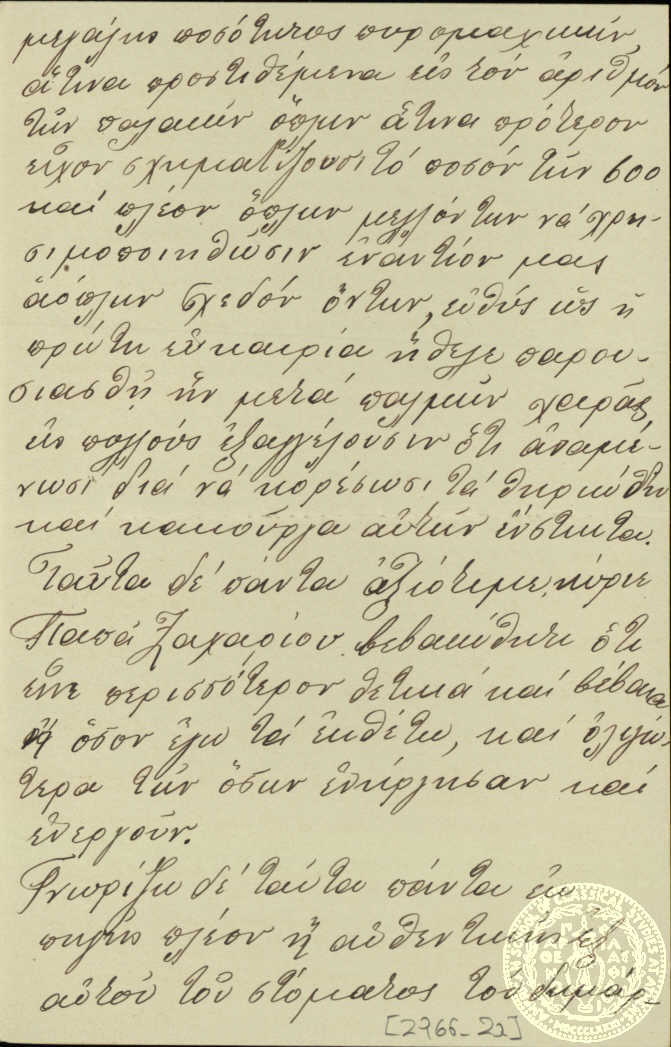 μεγάλης ποσότητος πυρομαχικῶν,
ἅτινα προστιθέμενα εἰς τὸν ἀριθμὸν
τῶν παλαιῶν ὅπλων ἅτινα πρότερον
εἶχον σχηματίζουσι τὸ ποσὸν τῶν 600
καὶ πλέον ὅπλων μελλόντων νὰ χρη-
σιμοποιηθῶσιν ἐναντίον μας
ἀόπλων σχεδὸν ὄντων, εὐθὺς ὡς ἡ
πρώτη εὐκαιρία ἤθελε παρου-
σιασθῆ ἣν μετὰ παλμῶν χαρᾶς,
ὡς πολλοὺς ἐξαγγέλουσιν ὅτι ἀναμέ-
νωσι διὰ νὰ κορέσωσι τὰ θηριώδη
καὶ κακοῦργα αὐτῶν ἔνστικτα.
Ταῦτα δὲ πάντα ἀξιότιμε κύριε
Παπᾶ Ζαχαρίου βεβαιώθητε ὅτι
εἶνε περισσότερον θετικὰ καὶ βέβαια
ἢ ὅσον ἐγὼ τὰ ἐκθέτω, καὶ ὀλιγώ-
τερα τῶν ὅσων ἐνήργησαν καὶ
ἐνεργοῦν.
Γνωρίζω δὲ ταῦτα πάντα ἐκ
πηγῆς πλέον ἢ αὐθεντικῆς ἐξ
αὐτοῦ τοῦ στόματος τοῦ δημάρ-
[2766-2α]